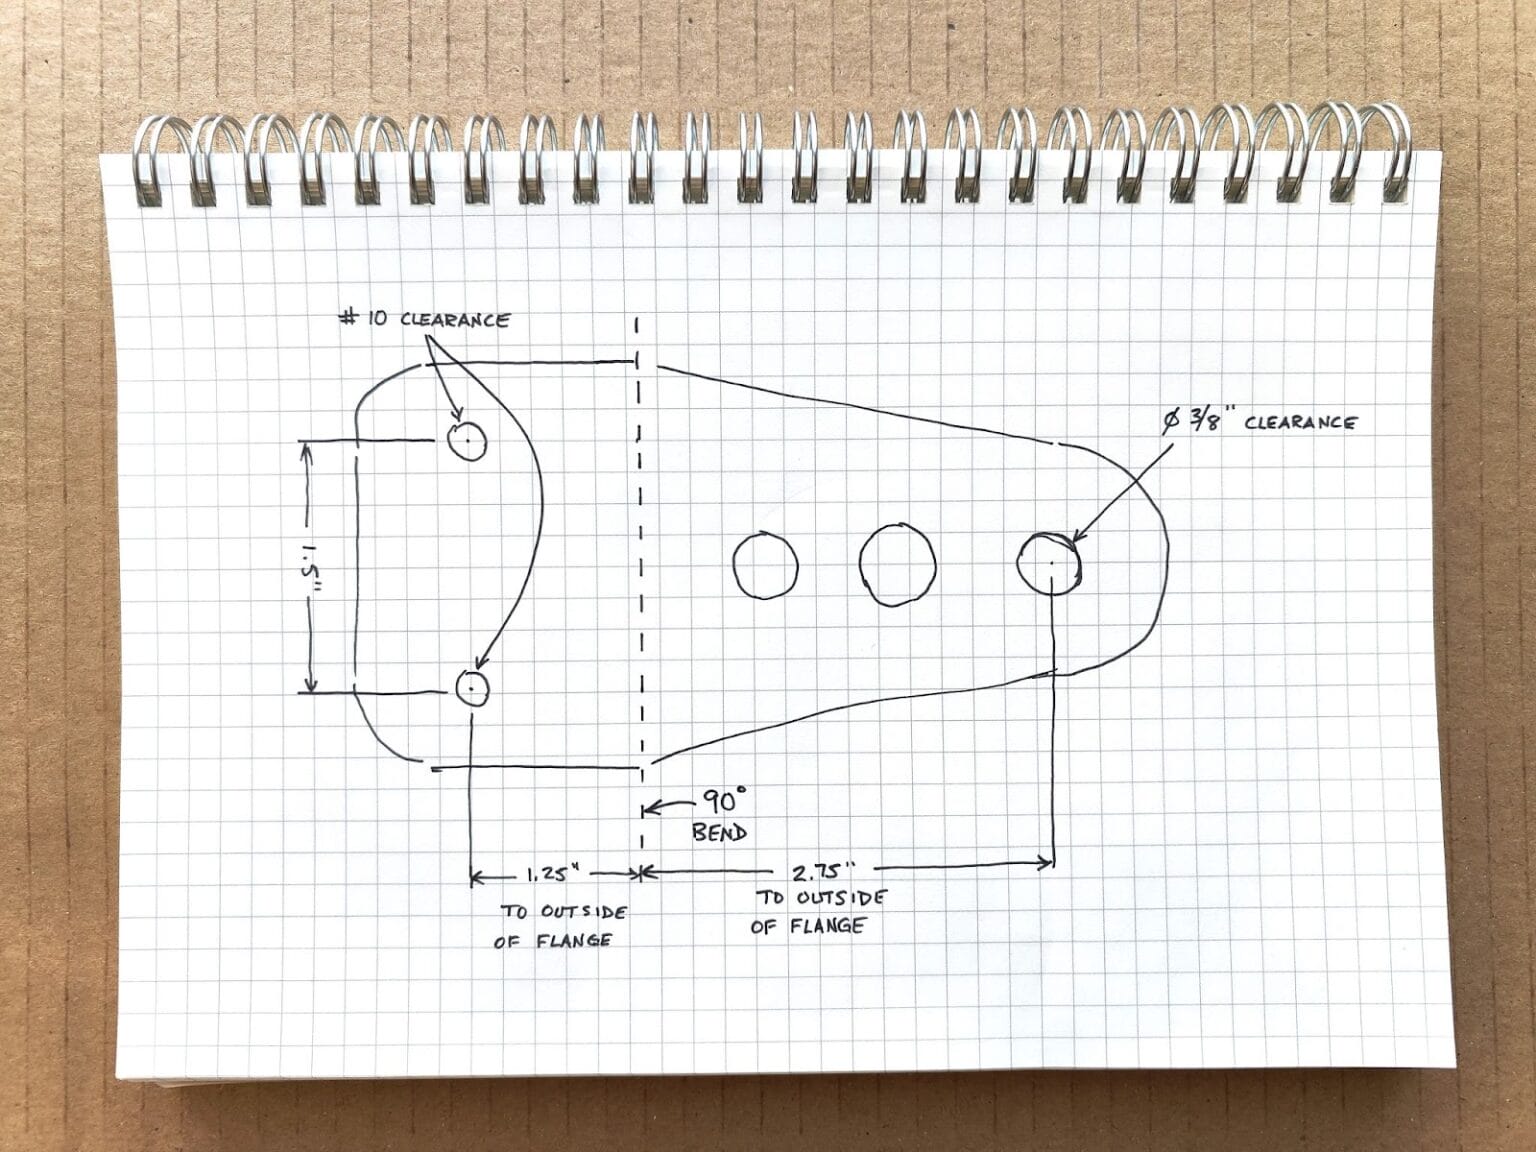 # 10 CLEARANCE
Ø 3/8" CLEARANCE
1.5"
90°
BEND
1.25"
TO OUTSIDE
OF FLANGE
2.75"
TO OUTSIDE
OF FLANGE